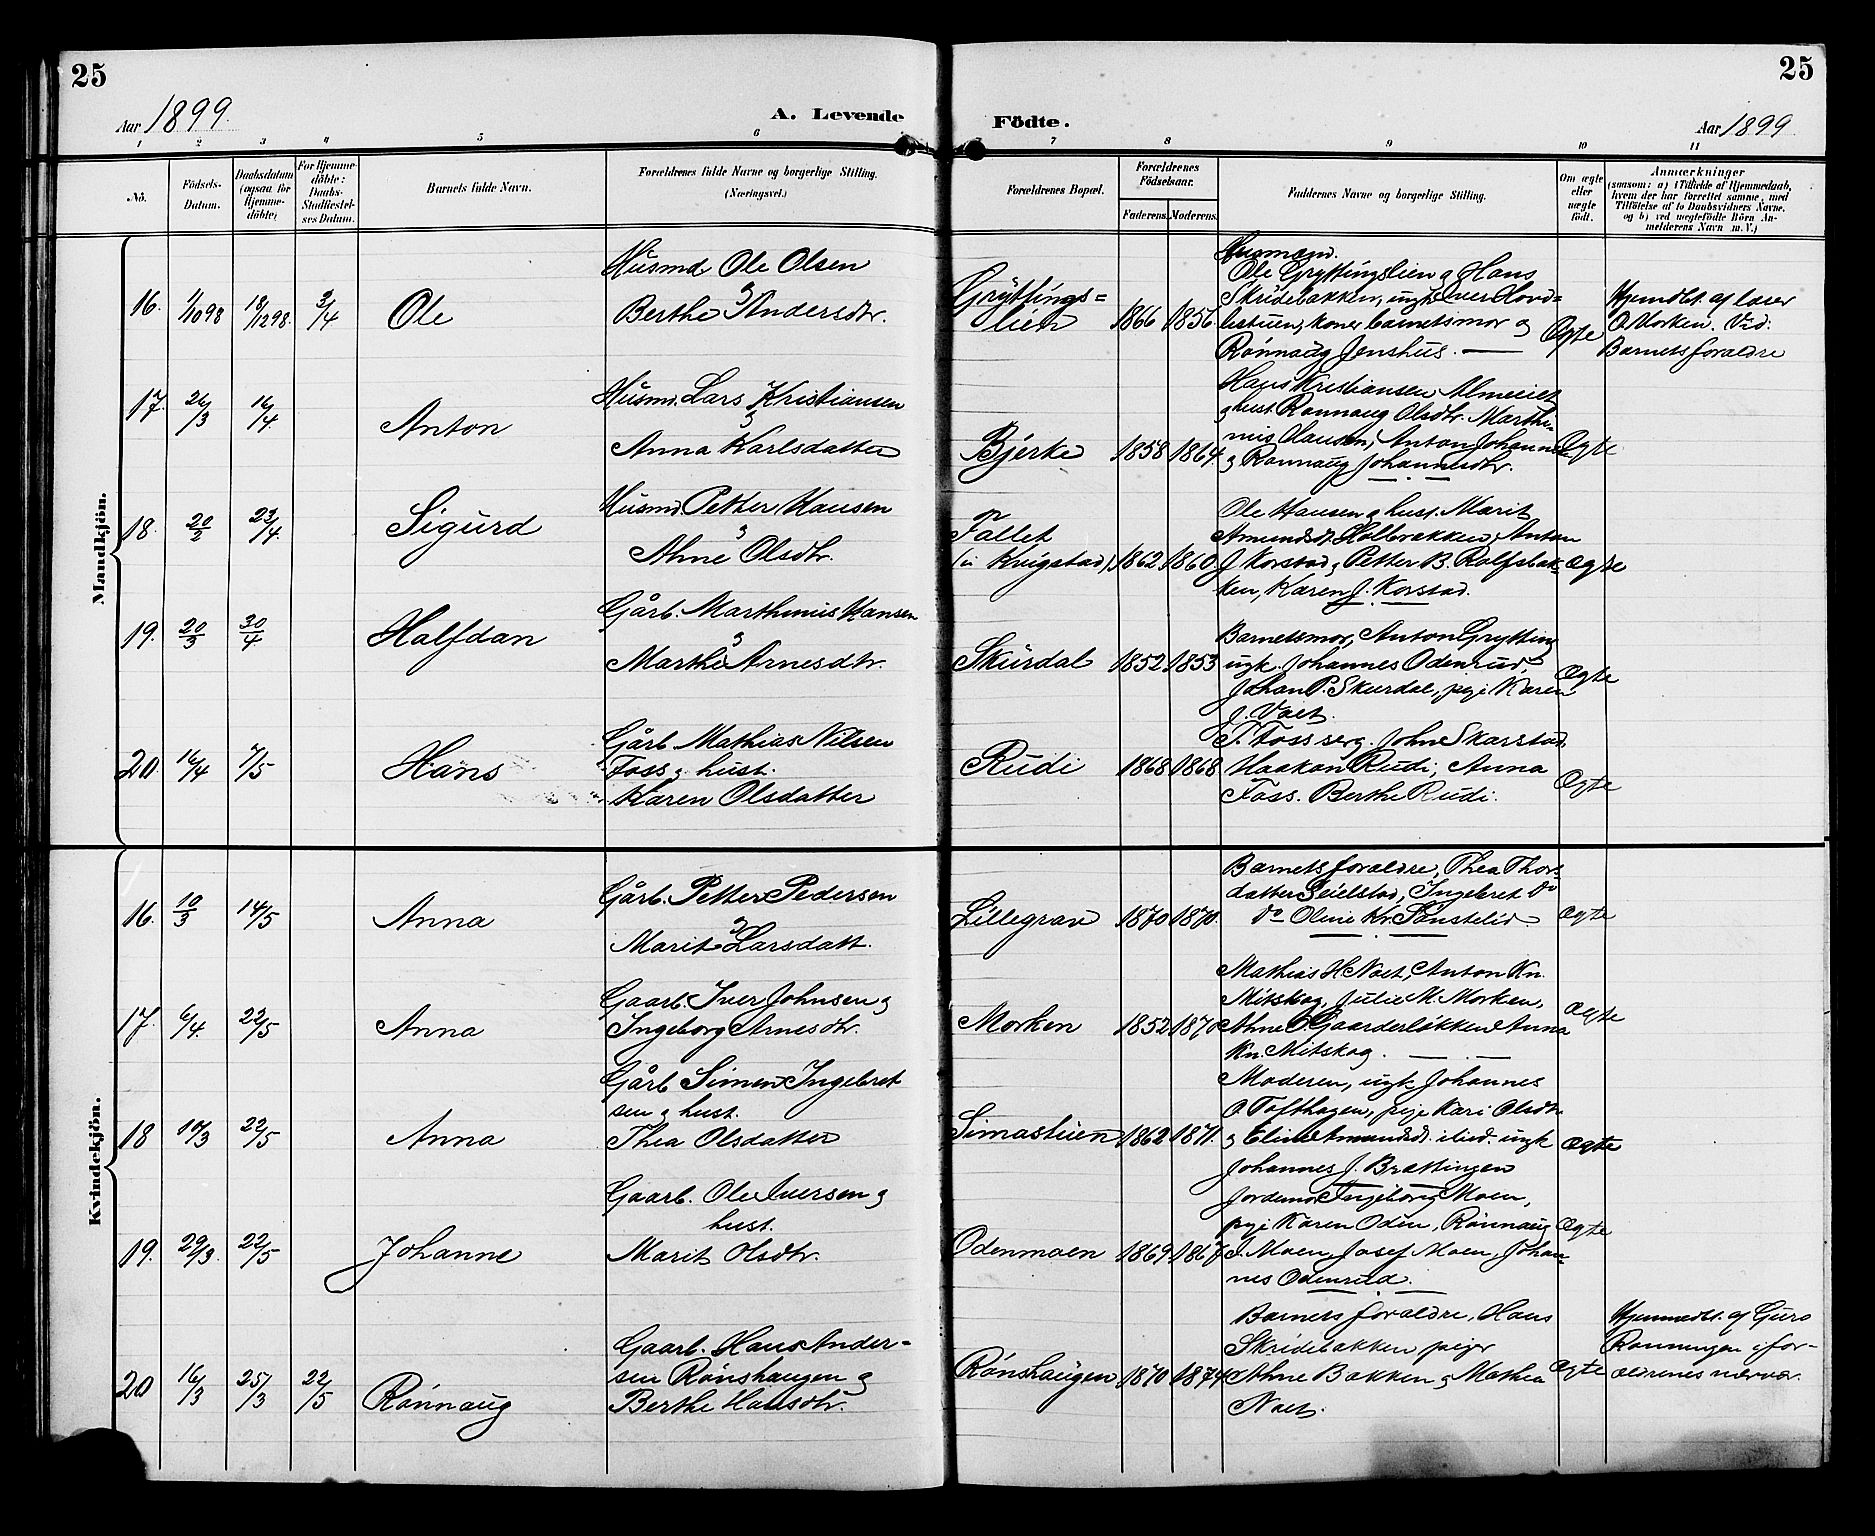 25
25
Aar 1899.
A. Levende
Födte.
Aar 1899
1 2 3 4 5 6 7 8 9 10 11
No.
Födsels-
Datum.
Daabsdatum
(ogsaa for
Hjemme-
döbte)
For Hjemme-
döbte:
Daabs-
Stadfæstel-
ses Datum.
Barnets fulde Navn.
Forældrenes fulde Navne og borgerlige Stilling.
(Næringsvei.)
Forældrenes Bopæl.
Forældrenes
Födselsaar.
Faderens. Moderens.
Faddernes Navne og borgerlige Stilling.
Om ægte
eller
uægte
födt.
Anmærkninger
(saasom: a) i Tilfælde af Hjemmedaab,
hvem der har forrettet samme, med
Tilföielse af to Daabsvidners Navne,
og b) ved uegtefödte Börn An-
melderens Navn m. V.)
Mandkjön.
16. 1/10 98 18/12 98. 3/4
Ole
Husmd Ole Olsen
&
Berthe Andersdtr.
Gryttings=
lien
1866 1856.
Husmænd.
Ole Gryttingslien & Hans
Skridebakken, ungk. Iver Hovd=
lestuen, koner barnets mor &
Rønnaug Jenshus.
Ægte
Hjemdbt. af læser
O Morken. Vid:
Barnets forældre
17. 26/3 16/4
Anton
Husmd. Lars Kristiansen
&
Anna Karlsdatter
Bjerke
1858 1864.
Hans Kristiansen
& hust. Rønnaug Olsdtr. Marthi-
nus Hansen, Anton Johannes
& Rønnaug Johannesdtr.
Ægte
18. 20/2 23/4
Sigurd
Husmd. Petter Hansen
&
Ahne Olsdtr.
Fallet
(u. Kvigstad).
1862. 1860.
Ole Hansen & hust. Marit
Amundsdt. Holbrækken, Anton
J Korstad, Petter B. Rolfsbak-
ken, Karen J. Korstad.
Ægte
19. 20/3 30/4
Halfdan
Gårb. Marthinus Hansen
&
Marthe Arnesdtr.
Skurdal
1852. 1853
Barnets mor, Anton Grytting
ungk. Johannes Odenrud,
Johan P. Skurdal, pige Karen
J. Voet.
Ægte
20. 16/4 7/5
Hans
Gårb. Mathias Nilsen
Foss & hust.
Karen Olsdatter
Rudi
1868 1868
T. Foss serg. Johne Skarstad.
Haakon Rudi, Anna
Foss. Berthe Rudi.
Ægte
Kvindekjön.
16. 10/3 14/5
Anna
Gårb. Petter Pedersen
&
Marit Larsdatt.
Lillegrav
1870 1870.
Barnets forældre, Thea Thors-
datter Seielstad, Ingebret do
do Oline Kr. Sønstelid.
Ægte
17. 6/4. 22/5
Anna
Gaarb. Iver Johnsen &
Ingeborg Arnesdtr.
Morken
1852 1870
Mathias H Noet, Anton Kn.
Mitskog, Julie M. Morken,
Ahne O. Gaarderløkken Anna
Kn. Mitskog.
Ægte
18 10/3 22/5
Anna
Gårb Simen Ingebret
sen & hust.
Thea Olsdatter
Simastuen
1862 1871.
Moderen, ungk. Johannes
O. Tofthagen, pige Kari Olsdtr.
& Eline Amundsdt. ungk
Johannes J. Brættingen
Ægte
19. 29/3. 22/5
Johanne
Gaarb. Ole Iversen &
hust.
Marit Olsdtr.
Odenmoen
1869 1867
Jordemor Ingeborg Moen,
pige Karen Oden, Rønnaug
J. Moen, Josef Moen, Johan-
nes Odenrud.
Ægte
20 16/3 25/3 22/5
Rønnaug
Gaarb. Hans Ander-
sen Rønshaugen &
Berthe Hansdtr.
Rønshaugen
1870 1874
Barnets forældre, Hans
Skridebakken piger
Ahne Bakken & Mathea
Noet.
Ægte
Hjemmedbt. af Guro
Rønningen i for-
ældrenes nærvær.